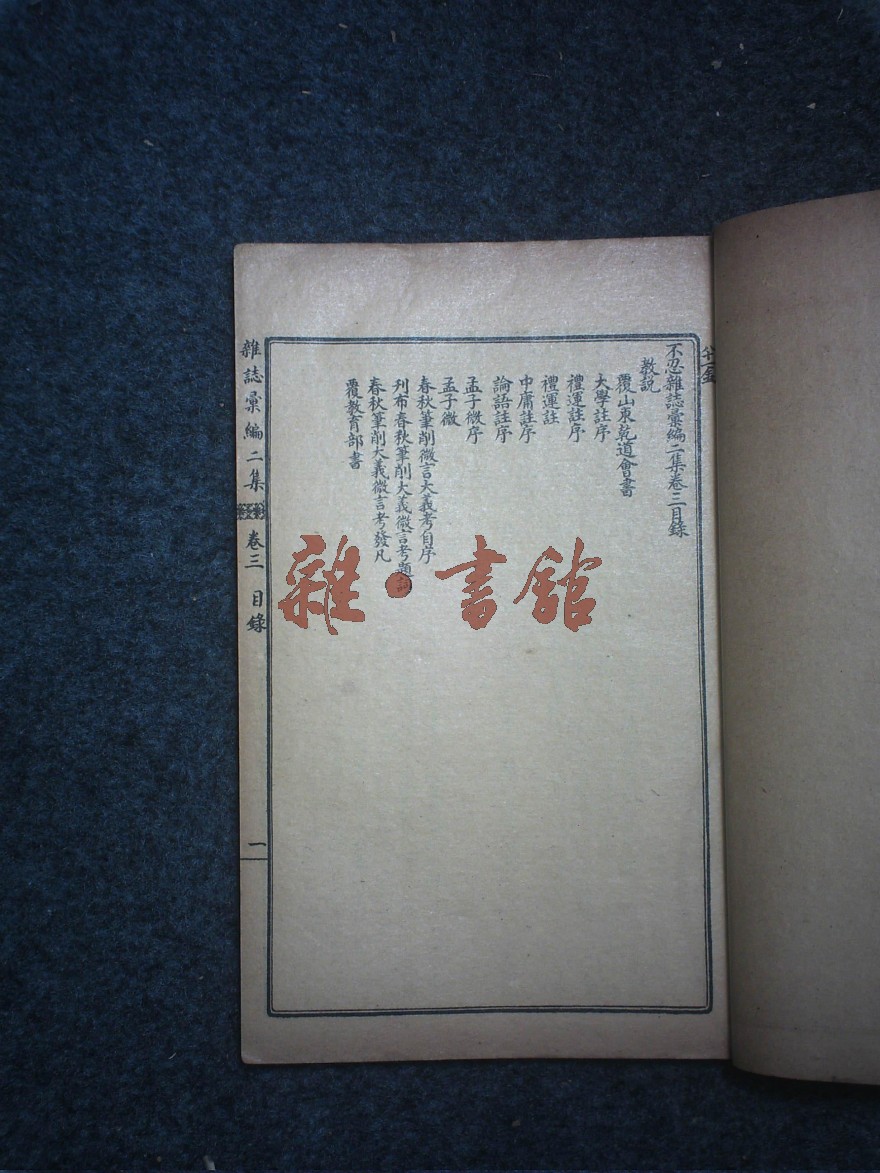 不忍雜誌彙編二集卷三目錄
教説
覆山東乾道會書
大學註序
禮運註序
禮運註
中庸註序
論語註序
孟子微序
孟子微
春秋筆削微言大義考自序
刋布春秋筆削大義微言考題詞
春秋筆削大義微言考發凡
覆教育部書
雜誌彙編二集 卷三 目錄 一
雜·書館